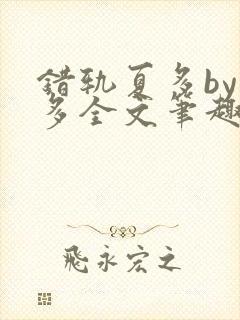 错轨夏多by
多全文笔趣
飛永宏之